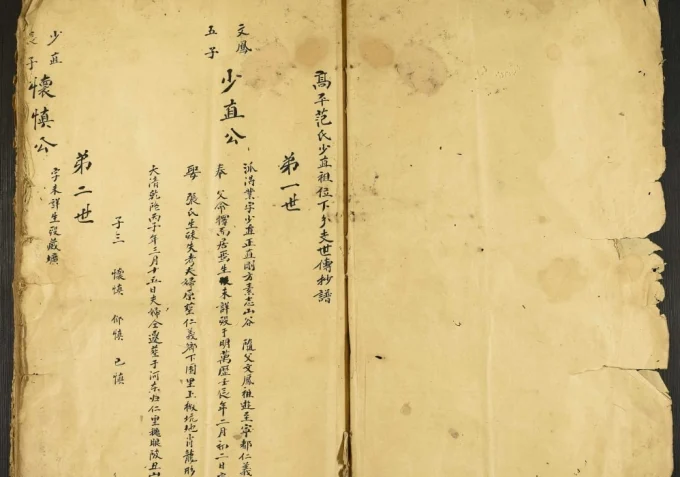 高平范氏少直祖位下多支世傳抄譜
第一世
派鴻業字少直正直剛方素志山谷 隨父文鳳祖遊至寧都仁義
奉 父命擇而居焉生 未詳歿于明萬歷壬辰年二月初二日
娶 張氏生殊失考夫婦原塟仁義鄉下團里玉板坑地肖龍形
大清乾隆丙子年二月十五日夫婦仝遷塟于河東歸仁里 陂丑山
子三 懷慎 仰慎 已慎
文鳳五子 少直公
第二世
少直長子 懷慎公
字未詳生歿藏塘